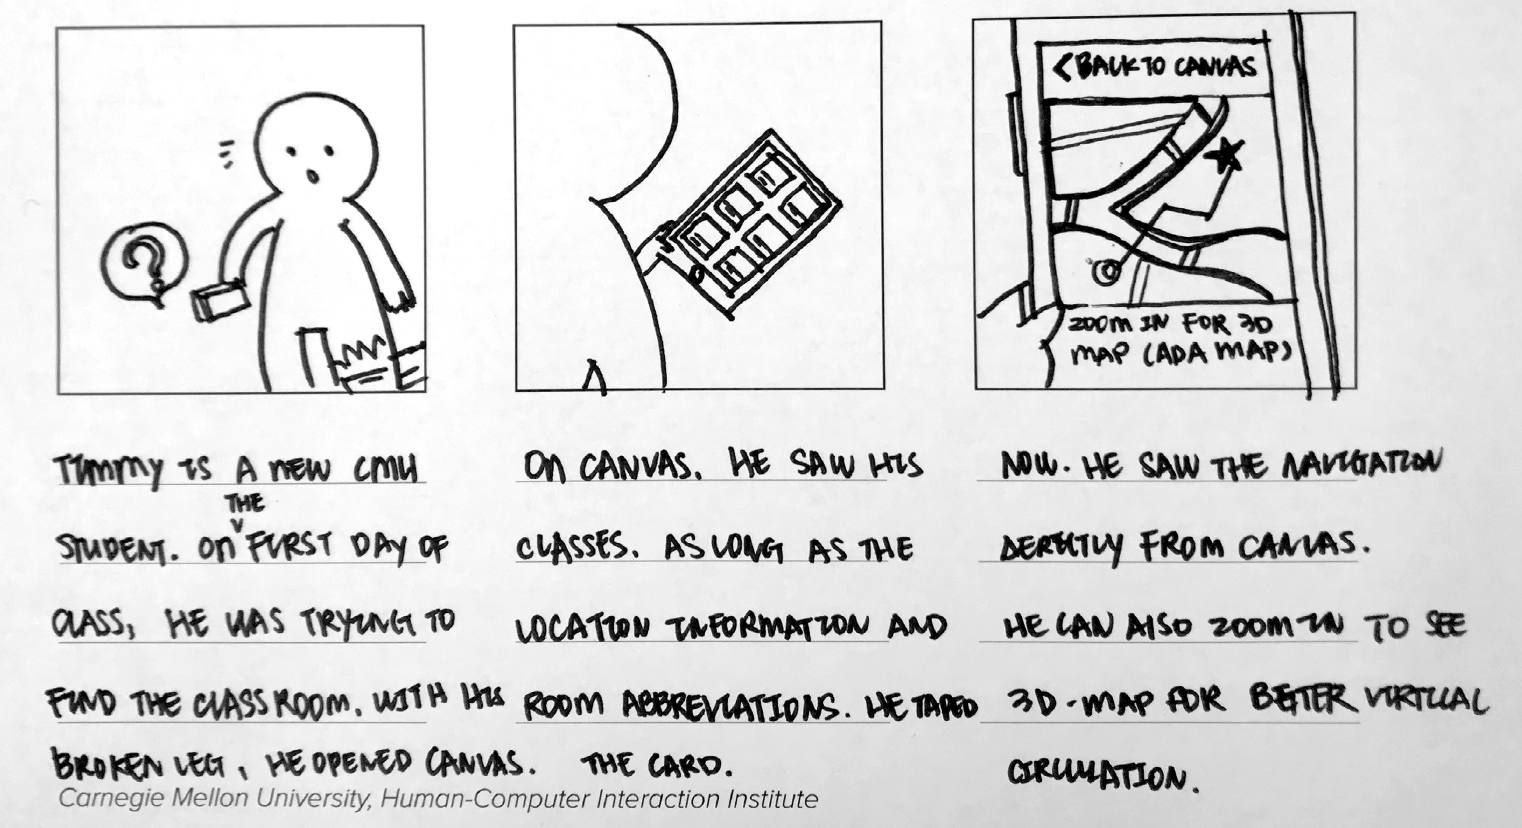 < BACK TO CANVAS
ZOOM IN FOR 3D
MAP (ADA MAP)
TIMMY IS A NEW CMU
STUDENT. ON THE FIRST DAY OF
CLASS, HE WAS TRYING TO
FIND THE CLASSROOM. WITH HIS
BROKEN LEG, HE OPENED CANVAS.
ON CANVAS. HE SAW HIS
CLASSES. AS LONG AS THE
LOCATION INFORMATION AND
ROOM ABBREVIATIONS. HE TAPED
THE CARD.
NOW. HE SAW THE NAVIGATION
DERECTLY FROM CANVAS.
HE CAN ALSO ZOOM IN TO SEE
3D-MAP FOR BETTER VIRTUAL
CIRCULATION.
Carnegie Mellon University, Human-Computer Interaction Institute